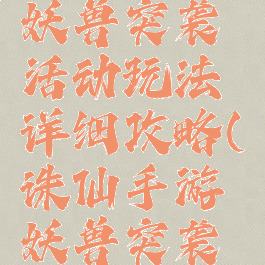 妖兽突袭
活动玩法
详细攻略(
诛仙手游
妖兽突袭